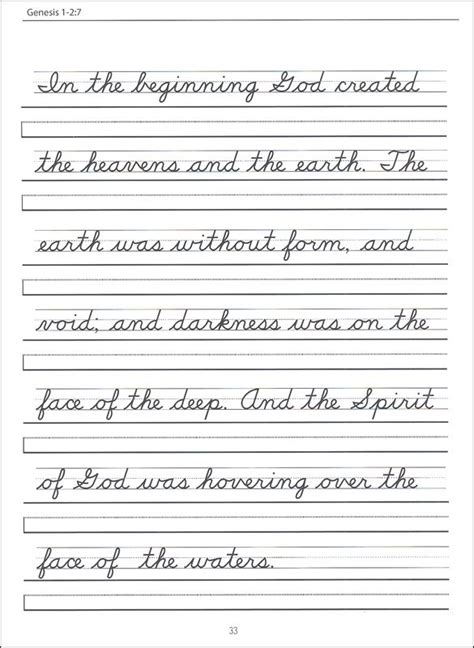 Genesis 1-2:7
In the beginning God created
the heavens and the earth. The
earth was without form, and
void; and darkness was on the
face of the deep. And the Spirit
of God was hovering over the
face of the waters.
33